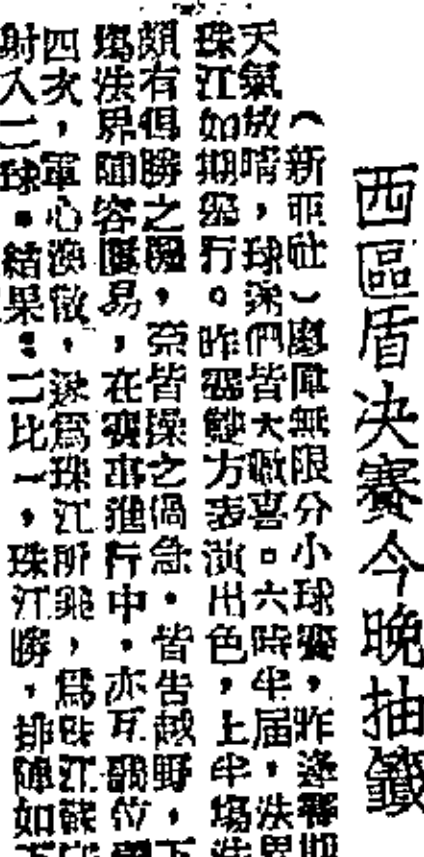 西區盾决賽今晚抽籤
（新亜社）慰陣無限分小球賽，昨逢賽期
天氣放晴，球迷們皆大歡喜。六時半届，法界
珠江如期舉行。昨賽雙方表演出色，上半塲法
頗有倶勝之，奈皆操之過急。皆告越野，下
塲法界陣容易，在賽事進行中，亦互調位
四次，軍心渙散，遂爲珠江所乘，爲珠江
射入二球。結果：二比一，珠江勝，排陣如下